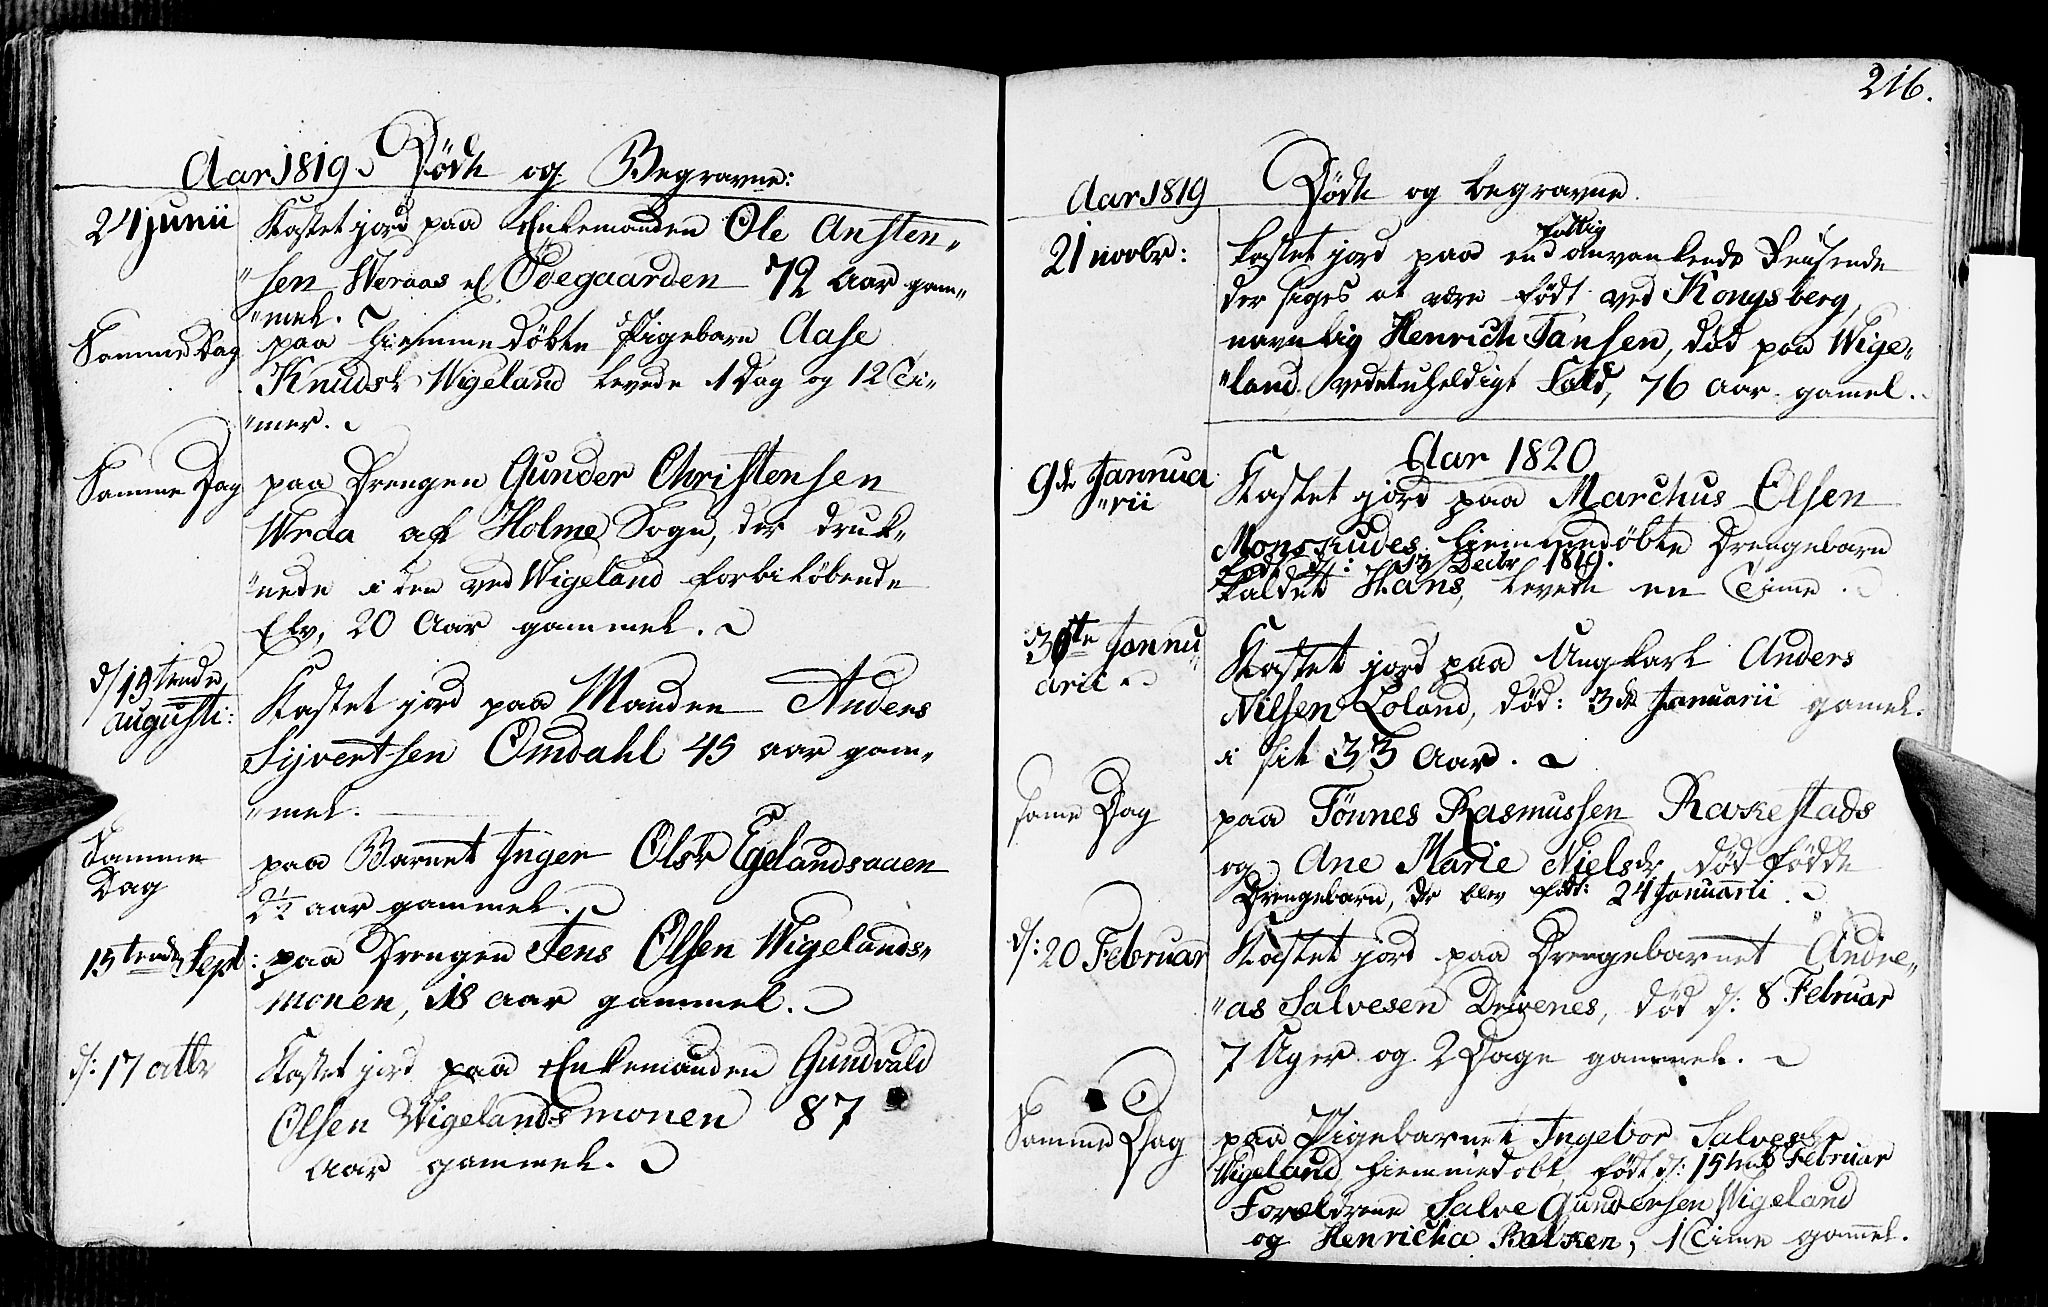 Aar 1819. Døde og Begravne:
24 junii Kastet jord paa Enkemanden Ole Ansten„
„sen Weraas el Ödegaarden 72 Aar gam„
„mel.
Samme Dag paa hiemmedöbte Pigebarn Aase
Knudsd. Wigeland levede 1 Dag og 12 Ti„
„mer.
Samme Dag paa Drengen Gunder Christensen
Wraa af Holme Sogn, der druk„
„nede i den ved Wigeland forbiløbende
Elv, 20 Aar gammel.
d/ 15tende augusti: Kastet jord paa Manden Anders
Sijvertsen Omdahl 45 aar gam„
„mel.
Samme Dag paa Barnet Inger Olsdr Egelandsaaen
2½ aar gammel.
15tende Sept: paa Drengen Jens Olsen Wigelands„
monen, 18 aar gammel.
d: 17 octbr Kastet jord paa Enkemanden Gundvald
Olsen Wigelandsmonen 87
Aar gammel.
216.
Aar 1819 Døde og begravne.
21 novbr: kastet jord paa end fattig omvankende Reisende
der siges at være født ved Kongsberg,
navnlig Henrich Jansen, død paa Wige„
„land, ved et uheldigt Fald, 76 aar gammel.
Aar 1820
9de Jannua„
„rii Kastet jord paa Marchus Olsen
Monskudes hiemmedøbte Drengebarn
født d: 13 Decbr 1819.
kaldet Hans, levede en Time.
30te Jannu„
arii Kastet jord paa Ungkarl Anders
Nilsen Loland, død: 3de Januarii gamel.
i sit 33 Aar.
same Dag paa Tönnes Rasmussen Rakestads
og Ane Marie Nielsdr død fødde
Drengebarn, der blev født: 24 Januarii.
d: 20 Februar Kastet jord paa Drengebarnet Andre„
„as Salvesen Drivenes, død d: 8 Februar
7 Uger og 2 Dage gammel.
Samme Dag paa Pigebarnet Ingebor Salvesdr
Wigeland hiemmedøbt, født d: 15tende Februar
Forældrene Salve Gundersen Wigeland
og Henricha Balken, 1 Time gammel.